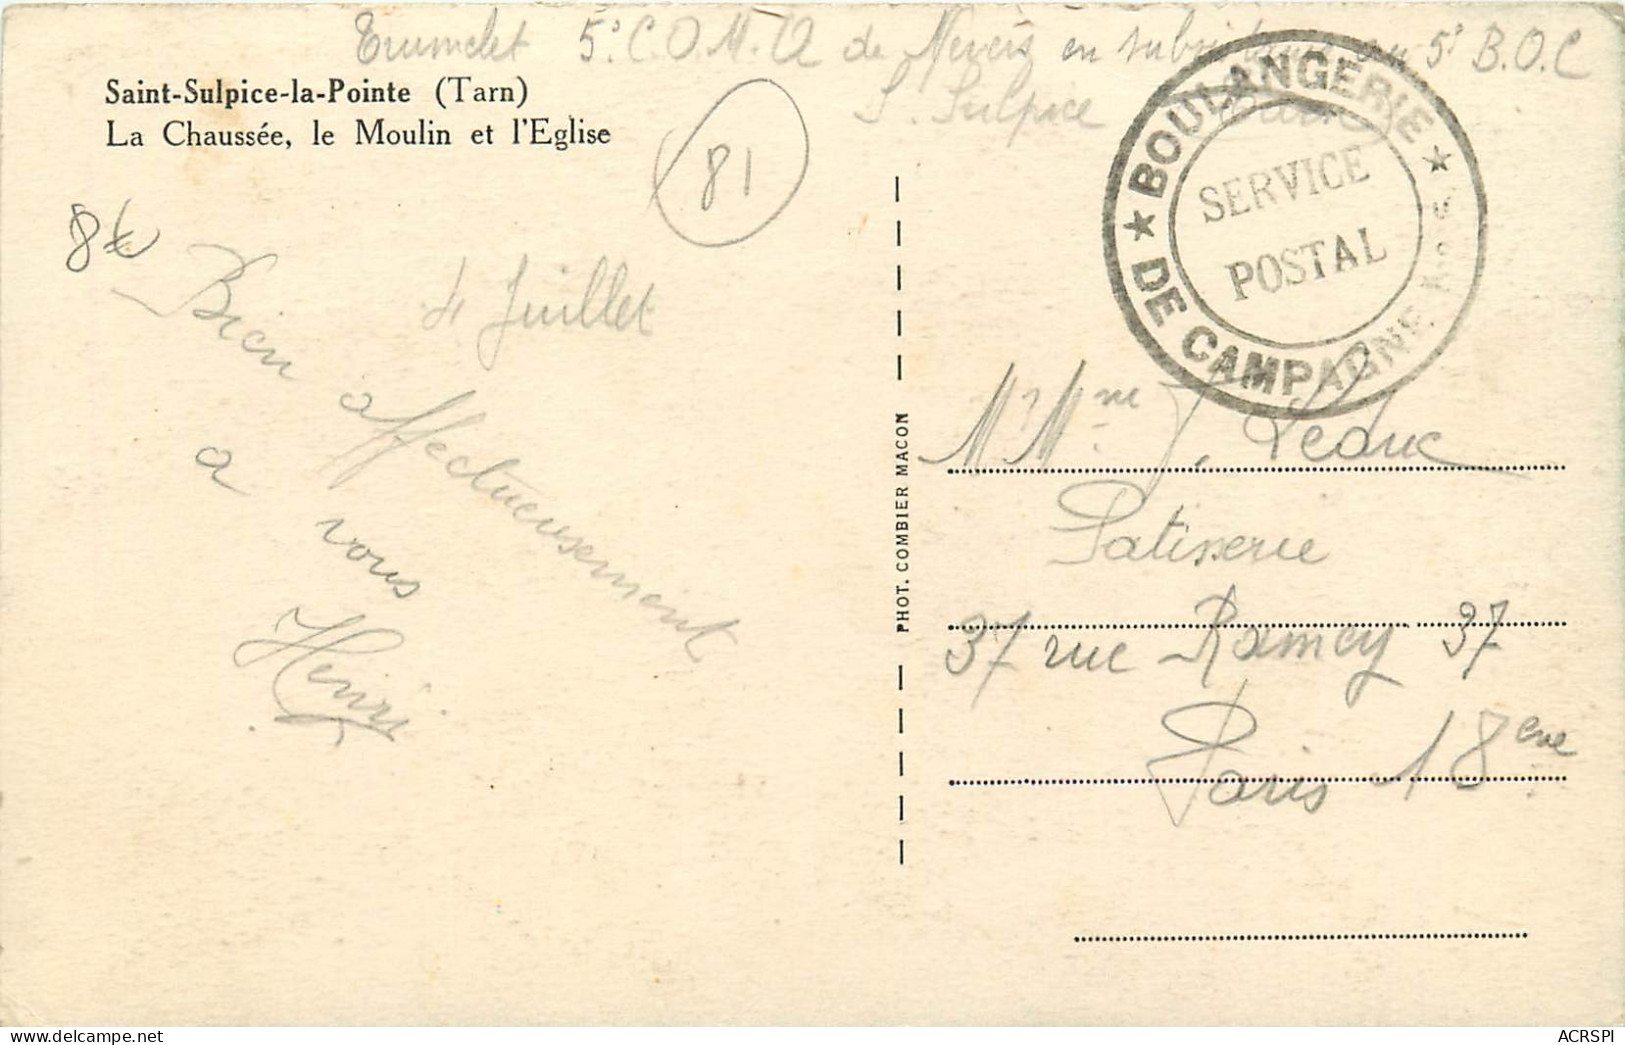 Trumelet 5e C.O.M.A de Nevers en subsistance au 5e B.O.C
St. Sulpice
Saint-Sulpice-la-Pointe (Tarn)
La Chaussée, le Moulin et l'Eglise
81
8€
4 Juillet
Bien affectueusement
a vous
Henri
PHOT. COMBIER MACON
★ BOULANGERIE ★
DE CAMPAGNE No 5
SERVICE
POSTAL
M Mme J. Leduc
Patisserie
37 rue Ramey 37
Paris 18eme
delcampe.net
ACRSPI